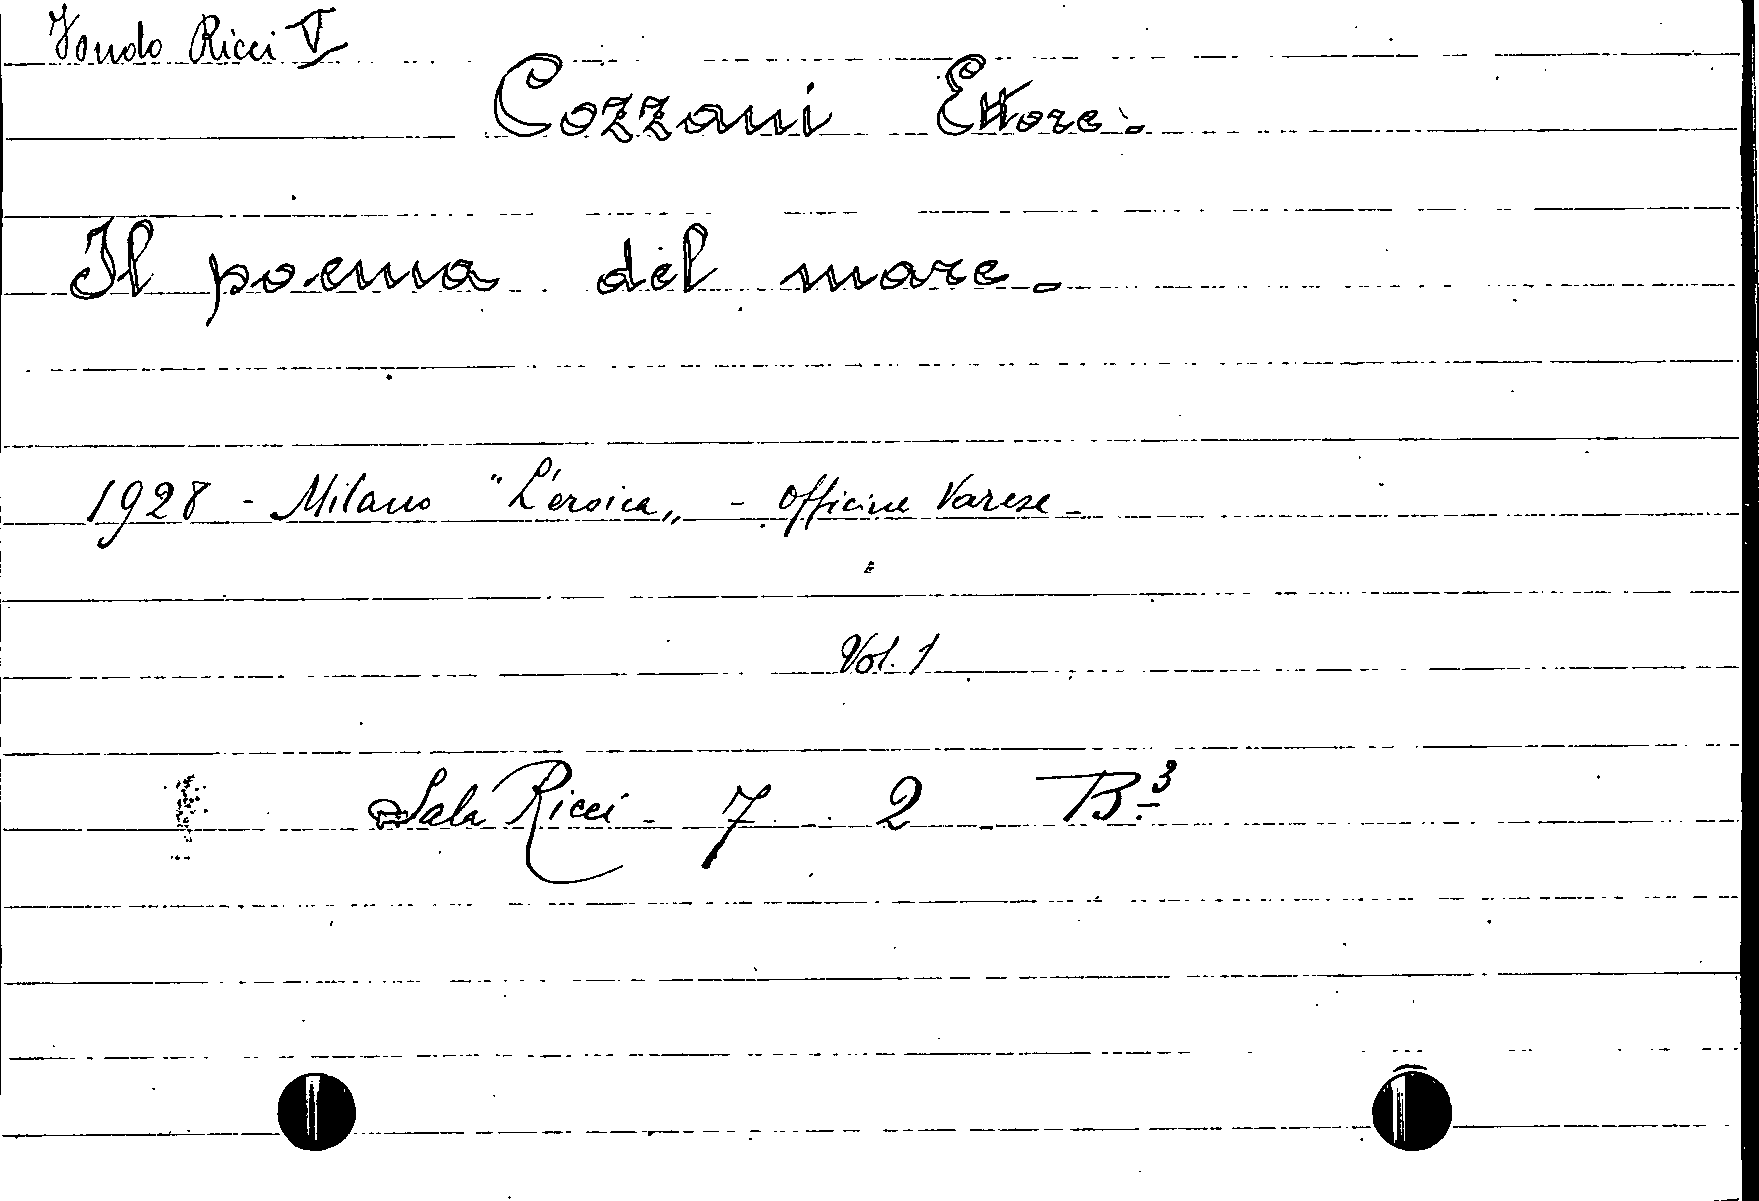 Fondo Ricci V
Cozzani Ettore.
Il poema del mare.
1928 - Milano "L'eroica„ - Officine Varese -
Vol. 1
Sala Ricci 7 2 B.³